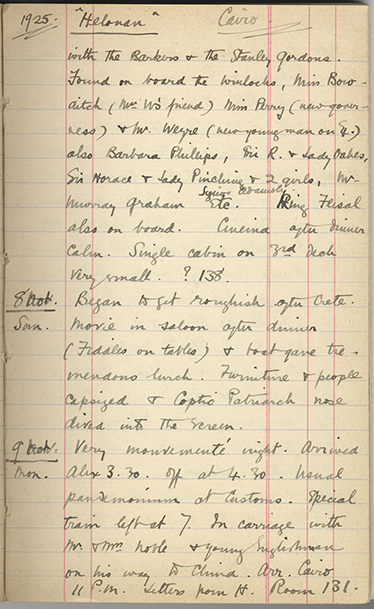 1925. "Helouan" Cairo
with the Barkers & the Stanley Gordons.
Found on board the Winlocks, Miss Bow-
ditch (Mrs W's friend) Miss Perry (new gover-
ness) & Mr. (new young man on
also Barbara Phillips, Sir R. & Lady Oakes,
Sir Horace & Lady Pinching & 2 girls, Mr.
Murray Graham Etc. King Feisal
also on board. Cinema after dinner
Calm. Single cabin on 3rd deck
very small. ? 138.
8 Nov. Began to get roughish after Crete.
Sun. Movie in saloon after dinner
(Fiddles on tables) & boat gave tre-
mendous lurch. Furniture & people
capsized & Coptic Patriarch nose
dived into the screen.
9 Nov. Very mouvementé night. Arrived
Mon. Alex 3.30. Off at 4.30. Usual
pandemonium at Customs. Special
train left at 7. In carriage with
Mr. & Mrs Noble & young Englishman
on his way to China. Arr. Cairo
11 P.M. Letters from H. Room 131.